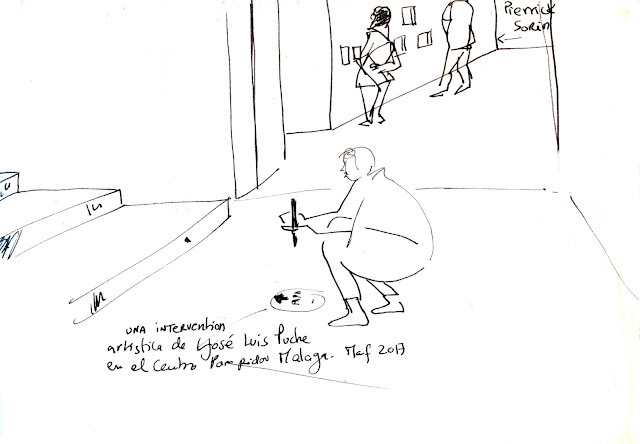 Pierrick
Sorin
una intervention
artistica de José Luis Puche
en el Centro Pompidou Malaga. Maf 2017